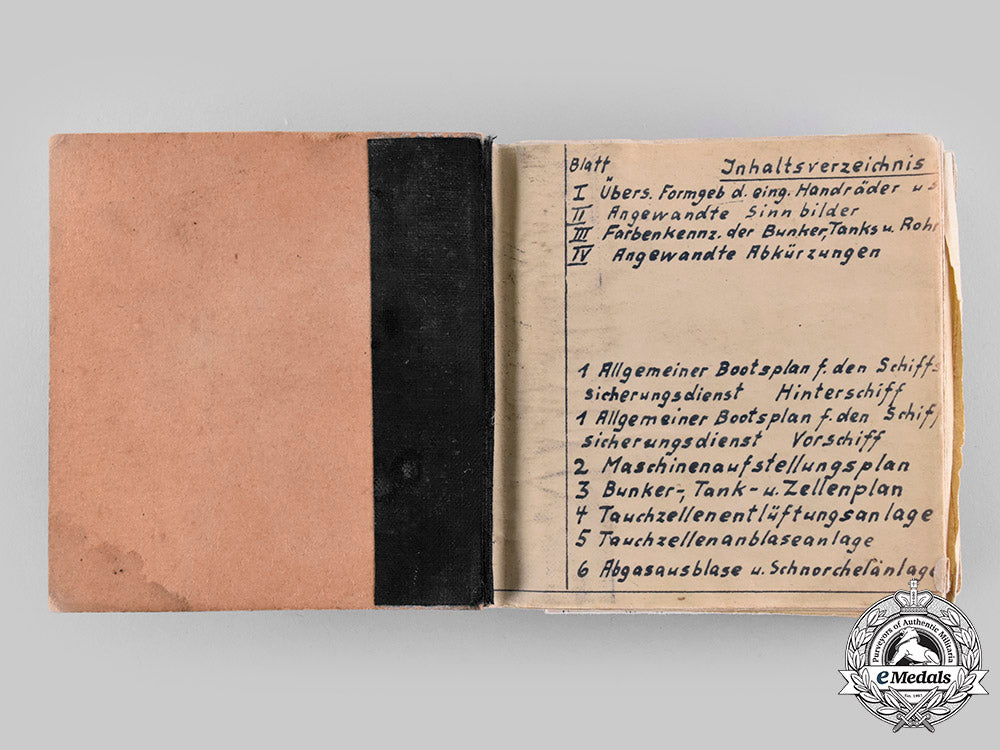 Blatt Inhaltsverzeichnis
I Übers. Formgeb d. eing. Handräder u
II Angewandte Sinnbilder
III Farbenkennz. der Bunker, Tanks u. Rohr
IV Angewandte Abkürzungen
1 Allgemeiner Bootsplan f. den Schiffs
sicherungsdienst Hinterschiff
1 Allgemeiner Bootsplan f. den Schiff
sicherungsdienst Vorschiff
2 Maschinenaufstellungsplan
3 Bunker-, Tank- u. Zellenplan
4 Tauchzellenentlüftungsanlage
5 Tauchzellenanblaseanlage
6 Abgasausblase u. Schnorchelanlage
Purveyors of Authentic Militaria
eMedals